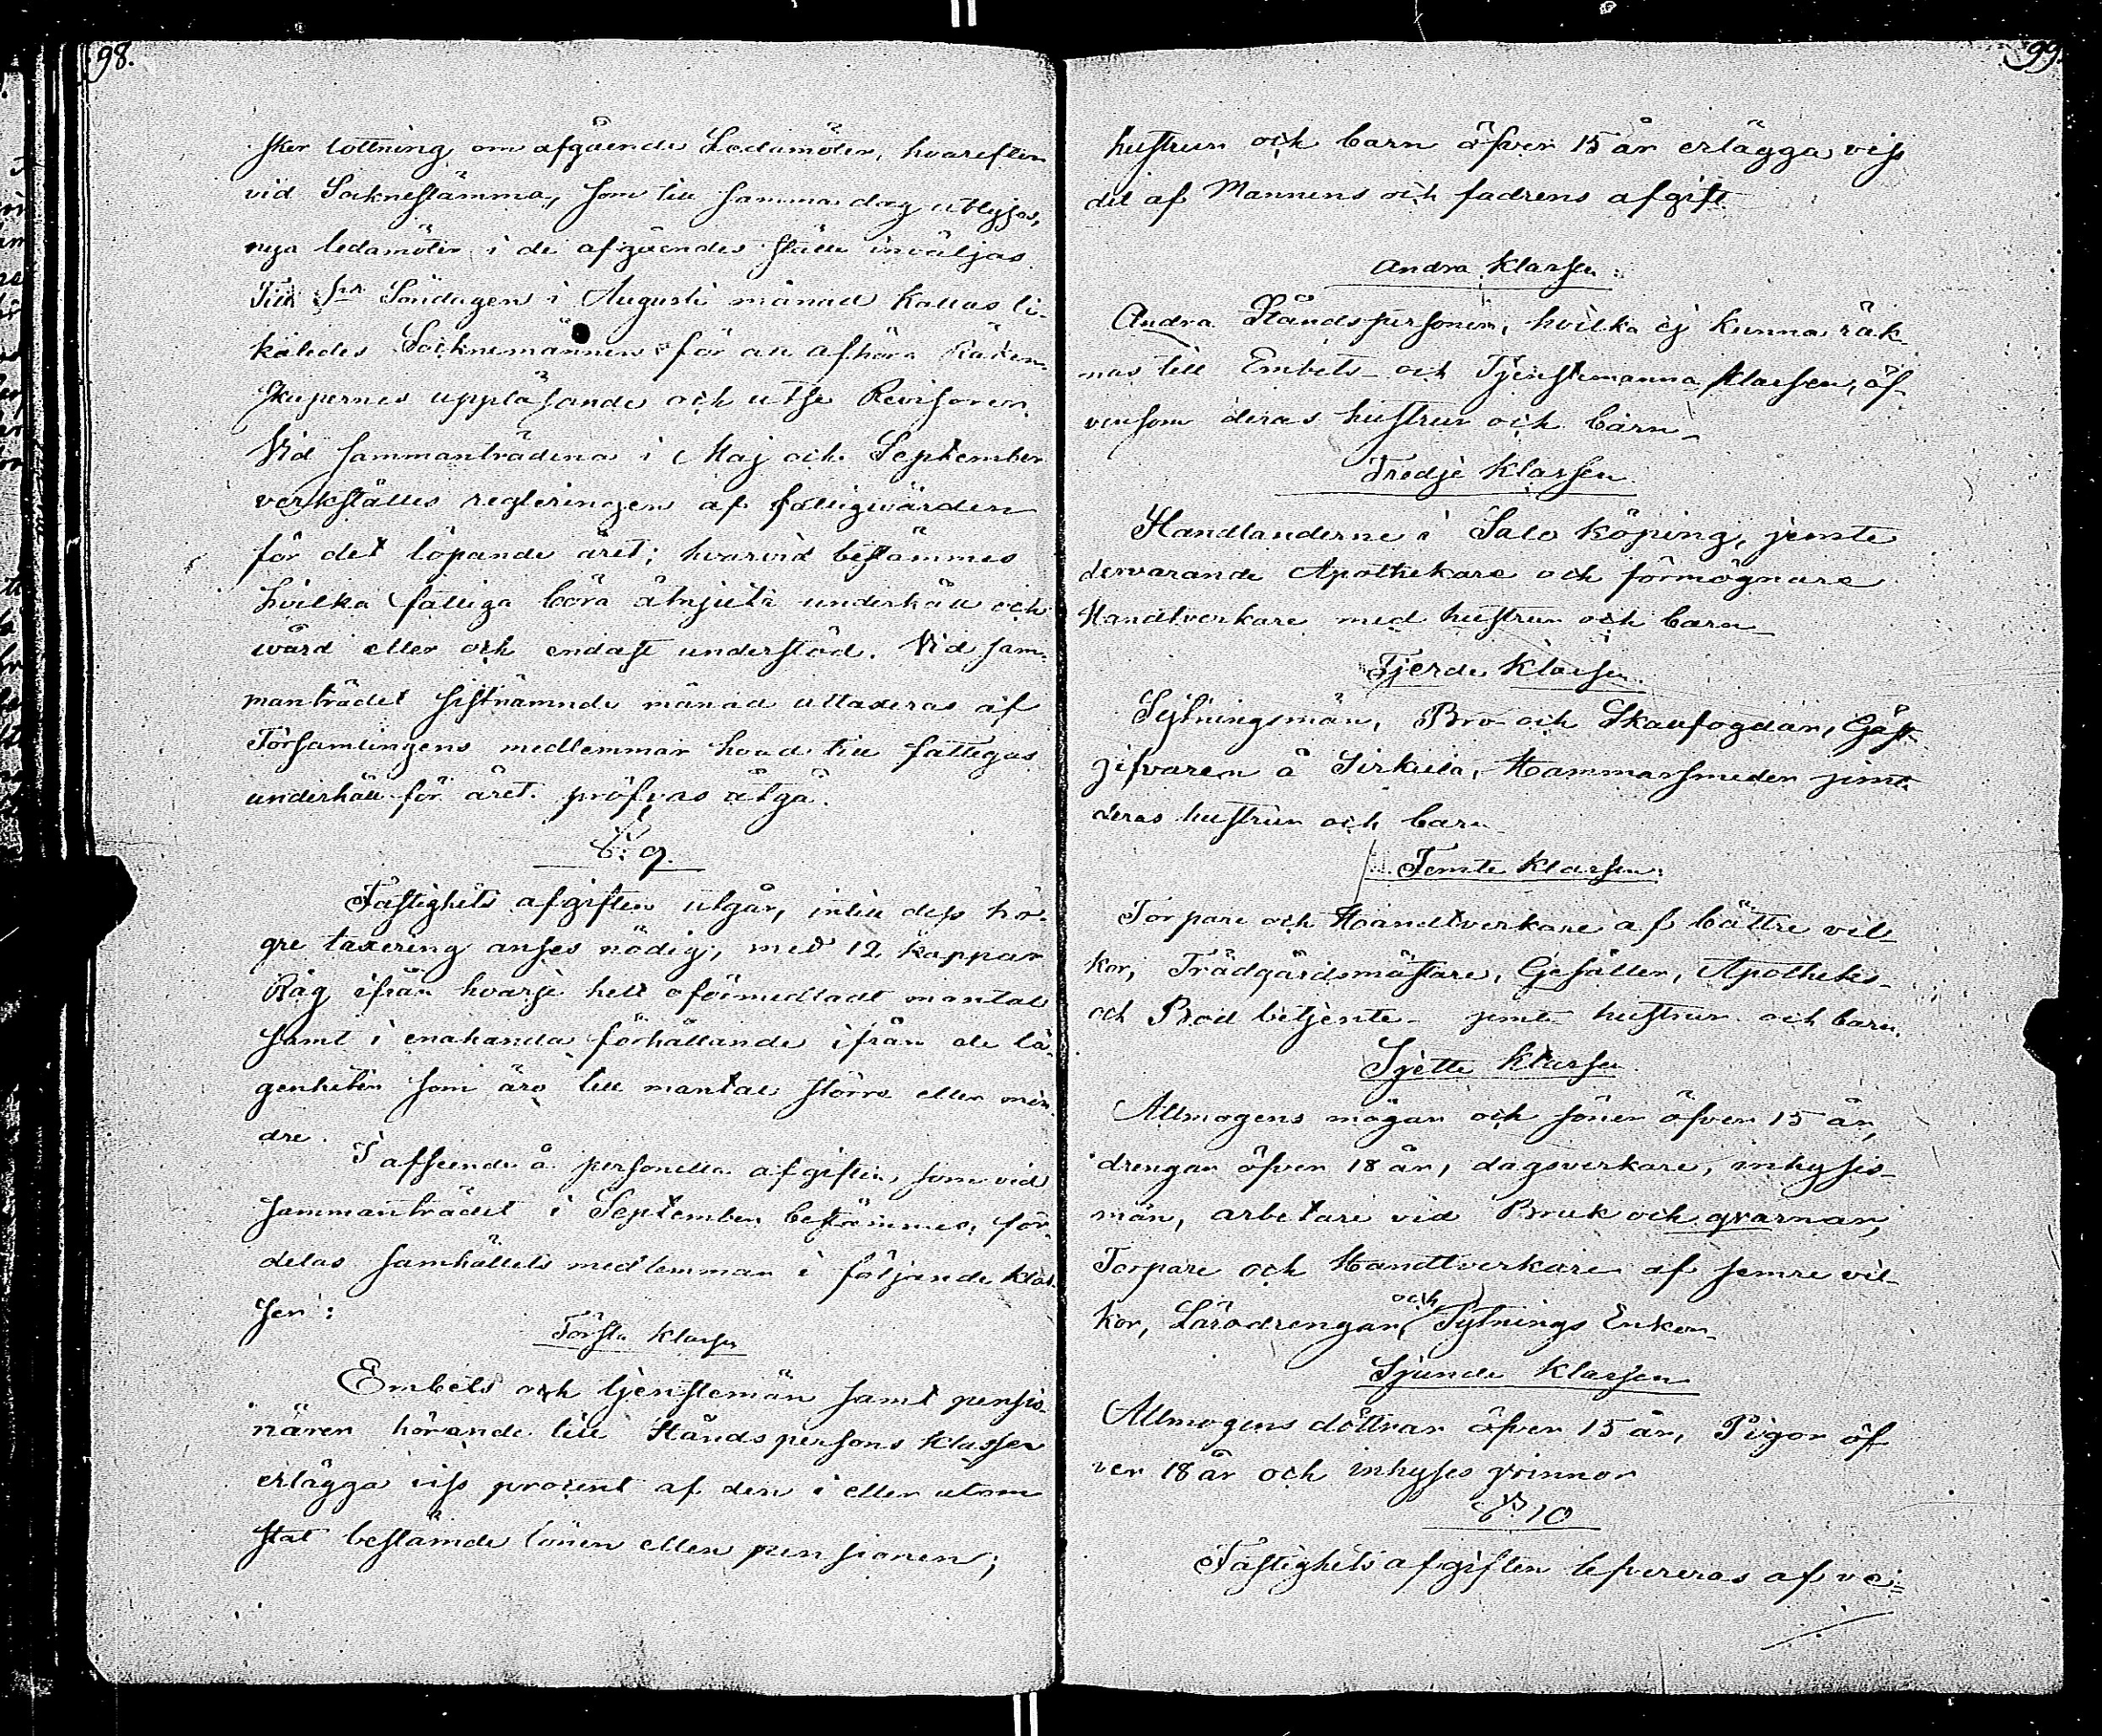 98.
sker lottning om afgående Ledamöter, hvareften
vid Sockneſtämma, som till samma dag utlyses,
nya ledamöter i de afgåendes ställe inväljas.
Till 1sta Söndagen i Augusti månad kallas li-
kaledes Socknemännen för att afhöra Räken-
skapernes uppläsande och utse Revisorer.
Vid sammanträdena i Maj och September
verkställes regleringen af fattigvården
för det löpande året; hvarvid bestämmes
hvilka fattiga böra åtnjuta underhåll och
wård eller och endast understöd. Vid sam-
manträdet sistnämnde månad uttaxeras af
Församlingens medlemmar hvad till fattigas
underhåll för året pröfvas åtgå.
§: 9.
Fastighets afgiften utgår, intill dess hö-
gre taxering anses nödig, med 12 kappar
Råg ifrån hvarje helt oförmedladt mantal
samt i enahanda förhållande ifrån de lä-
genheter som äro till mantal större eller min-
dre.
I afseende å personella afgiften, som vid
sammanträdet i September bestämmes, för-
delas samhällets medlemmar i följande klas-
ser:
Första Klassen
Embets och tjenstemän samt pensio-
närer hörande till Ståndspersons klassen
erlägga viss procent af den i eller utom
stat bestämde lönen eller pensionen;
99.
hustrun och barn öfver 15 år erlägga viss
del af Mannens och fadrens afgift
Andra Klassen:
Andra Ståndspersoner, hvilka ej kunna räk-
nas till Embets- och Tjenstemanna klassen, äf-
vensom deras hustrur och barn-
Tredje Klassen
Handlanderne i Salo köping, jemte
dervarande Apothekare och förmögnare
Handtverkare med hustrur och barn-
Fjerde Klassen
Sytningsmän, Bro- och Skallfogdar, Gäst-
gifvaren å Sirkula, Hammarsmeder jemte
deras hustrur och barn
Femte Klassen:
Torpare och Handtverkare af bättre vil-
kor, Trädgårdsmästare, Gesäller, Apotheks-
och Bod betjente- jemte hustrur och barn.
Sjette Klassen
Allmogens mågar och söner öfver 15 år,
drengar öfver 18 år, dagsverkare, inhyses-
män, arbetare vid Bruk och qvarnar,
Torpare och Handtverkare af semre vil-
kor, Lärodrengar, och Sytnings Enkor-
Sjunde Klassen
Allmogens döttrar öfver 15 år, Pigor öf-
ver 18 år och inhyses qvinnor
§: 10
Fastighets afgiften lefvereras af ve-